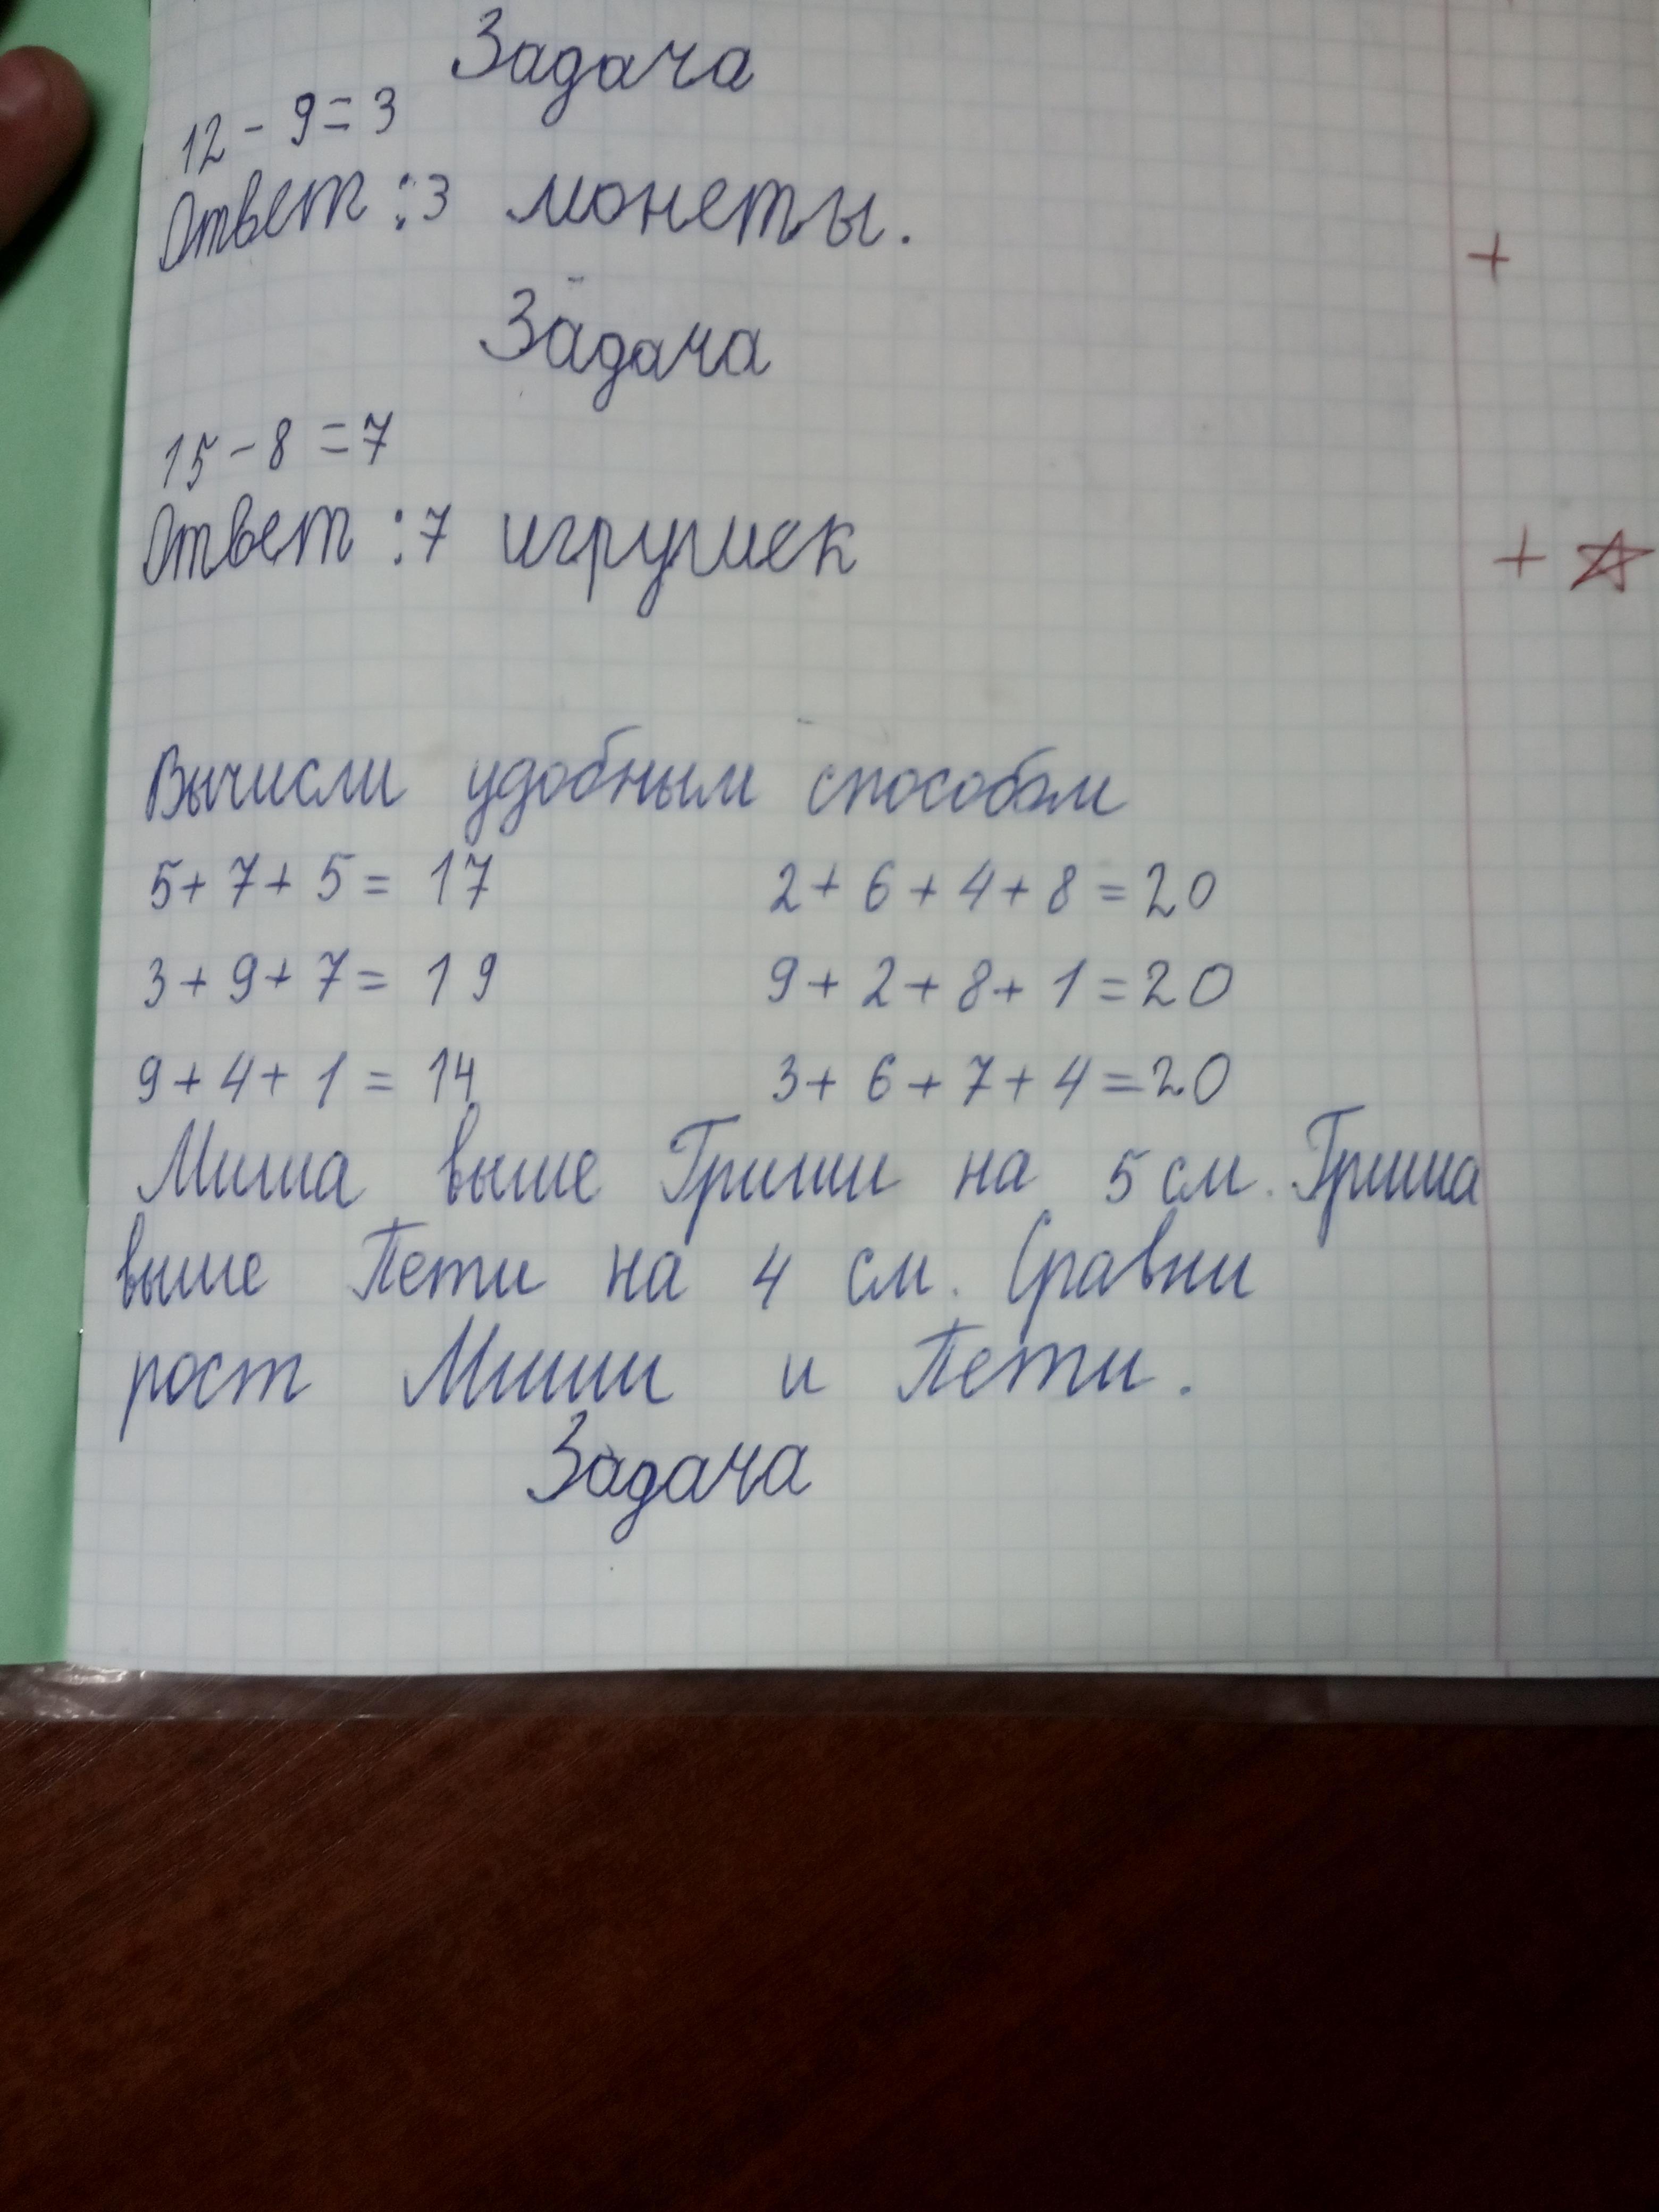 Задача
12 - 9 = 3
Ответ : 3 монеты.
+
Задача
15 - 8 = 7
Ответ : 7 игрушек
+
Вычисли удобным способом
5 + 7 + 5 = 17 2 + 6 + 4 + 8 = 20
3 + 9 + 7 = 19 9 + 2 + 8 + 1 = 20
9 + 4 + 1 = 14 3 + 6 + 7 + 4 = 20
Миша выше Гриши на 5 см. Гриша
выше Пети на 4 см. Сравни
рост Миши и Пети.
Задача